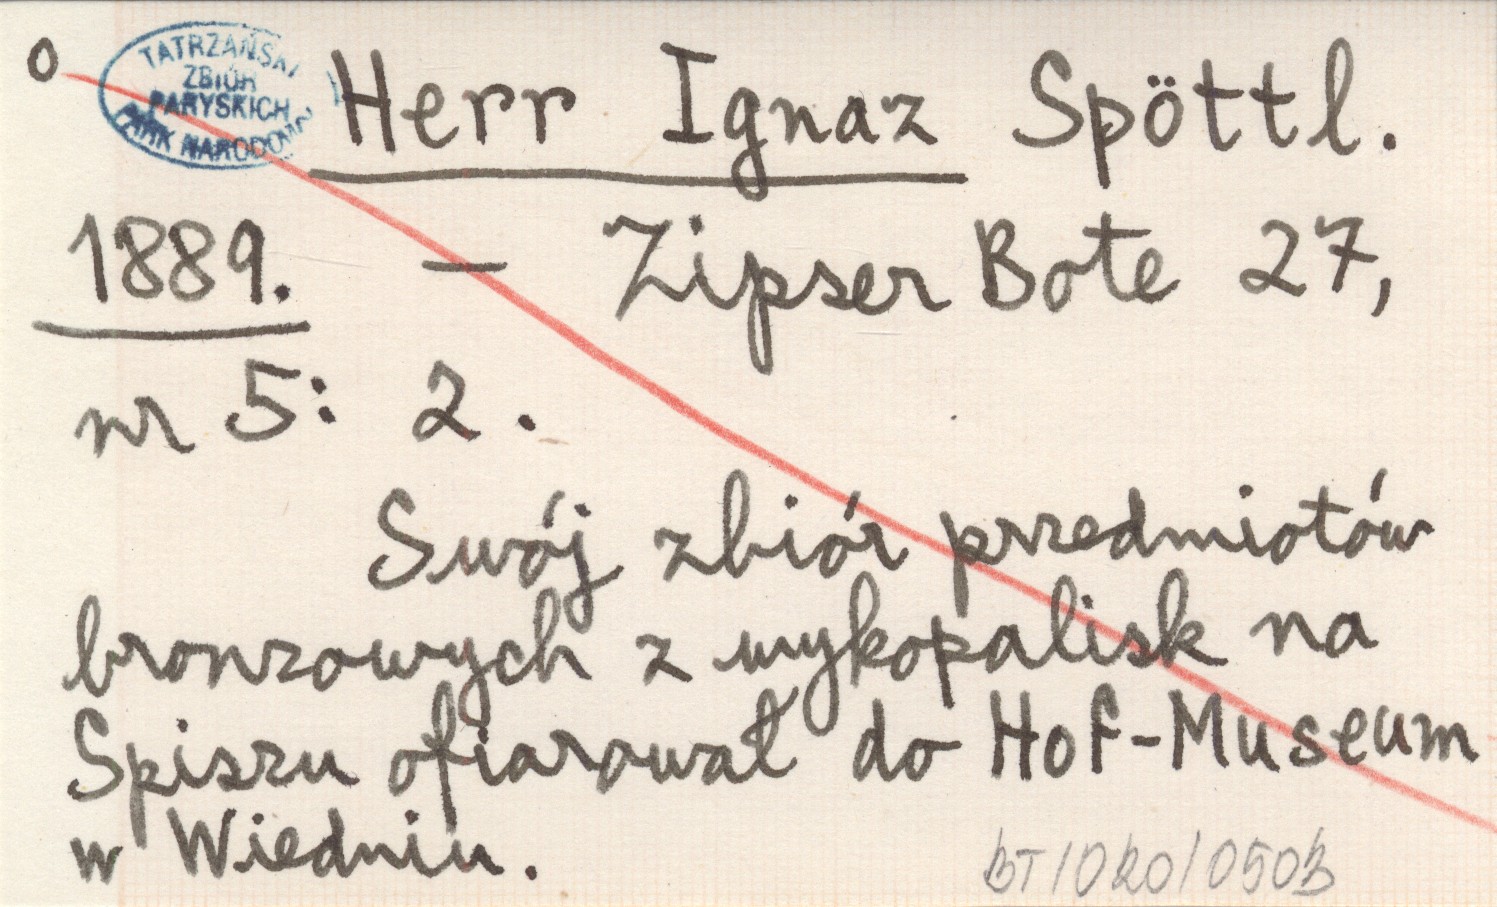 o
TATRZAŃSKI
ZBIÓR
PARYSKICH
PARK NARODOWY
Herr Ignaz Spöttl.
1889. — Zipser Bote 27,
nr 5: 2.
Swój zbiór przedmiotów
bronzowych z wykopalisk na
Spiszu ofiarował do Hof-Museum
w Wiedniu.
BT/020/0503